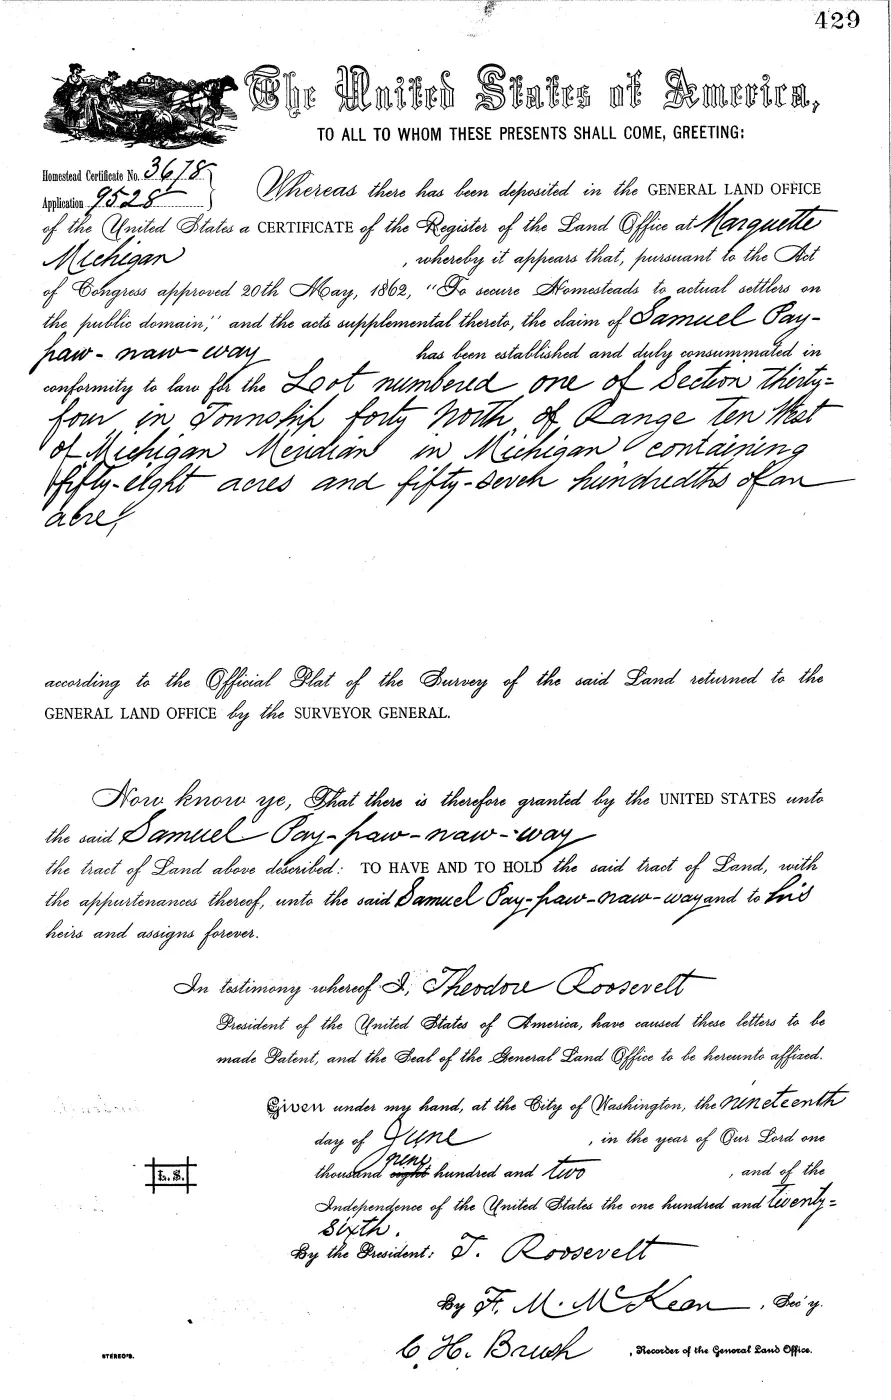 429
The United States of America,
TO ALL TO WHOM THESE PRESENTS SHALL COME, GREETING:
Homestead Certificate No. 3678
Application 9528
Whereas there has been deposited in the GENERAL LAND OFFICE
of the United States a CERTIFICATE of the Register of the Land Office at Marquette
Michigan , whereby it appears that, pursuant to the Act
of Congress approved 20th May, 1862, "To secure Homesteads to actual settlers on
the public domain," and the acts supplemental thereto, the claim of Samuel Pay-
paw-naw-way has been established and duly consummated in
conformity to law for the Loot numbered one of Section thirty=
four in Township forty North, of Range ten West
of Michigan Meridian in Michigan containing
fifty-eight acres and fifty-seven hundredths of an
acre,
according to the Official Plat of the Survey of the said Land returned to the
GENERAL LAND OFFICE by the SURVEYOR GENERAL.
Now know ye, That there is therefore granted by the UNITED STATES unto
the said Samuel Pay-paw-naw-way
the tract of Land above described: TO HAVE AND TO HOLD the said tract of Land, with
the appurtenances thereof, unto the said Samuel Pay-paw-naw-way and to his
heirs and assigns forever.
In testimony whereof I, Theodore Roosevelt
President of the United States of America, have caused these letters to be
made Patent, and the Seal of the General Land Office to be hereunto affixed.
Given under my hand, at the City of Washington, the nineteenth
day of June , in the year of Our Lord one
nine
thousand eight hundred and two , and of the
Independence of the United States the one hundred and twenty=
sixth.
L.S.
By the President: T. Roosevelt
By F. M. McKean , Sec'y.
C. H. Brush , Recorder of the General Land Office.
STEREO'S.